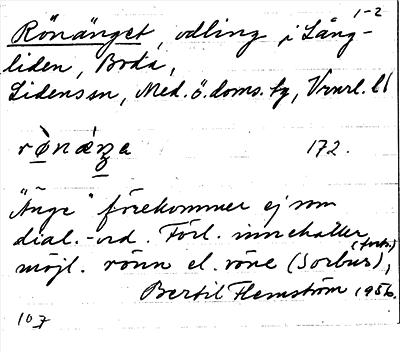 1-2
Rönänget, odling i Lång-
liden, Boda,
Lidens sn, Med. ö. doms. tg, Vrnrl. ll
rø̀næ̀ŋe 172.
"Änge" förekommer ej som
dial.-ord. Förl. innehåller
möjl. rönn el. röne (Sorbus) (forts.),
Bertil Flemström 1956.
107